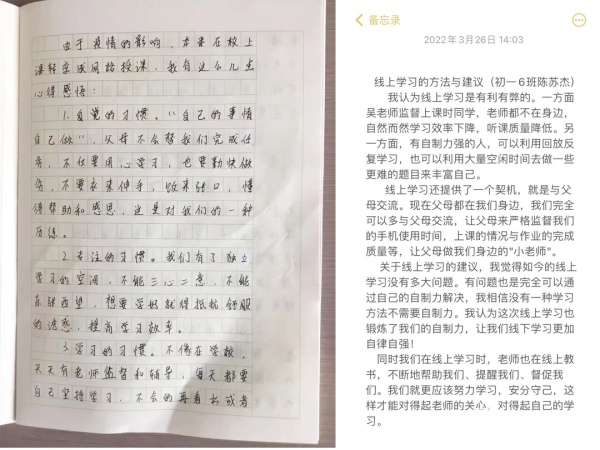 由于疫情的影响,本来在校上
课转变成网络授课,我有这么几点
心得感悟:
1.自觉的习惯。"自己的事情
自己做",父母不会替我们完成任
务,不仅要用心学习,也要勤快做
务,不要衣来伸手,饭来张口,懂
得帮助和感恩,这是对我们的一种
历练。
2.专注的习惯。我们有了独立
学习的空间,不能三心二意,不能
东张西望,想要学好就得抵抗舒服
的诱惑,提高学习效率。
3.学习的习惯。不像在学校,
天天有老师监督和辅导,每天都要
自己坚持学习,不会的再看书或者
备忘录
2022年3月26日 14:03
线上学习的方法与建议(初一6班陈苏杰)
我认为线上学习是有利有弊的。一方面
吴老师监督上课时同学,老师都不在身边,
自然而然学习效率下降,听课质量降低。另
一方面,有自制力强的人,可以利用回放反
复学习,也可以利用大量空闲时间去做一些
更难的题目来丰富自己。
线上学习还提供了一个契机,就是与父
母交流。现在父母都在我们身边,我们完全
可以多与父母交流,让父母来严格监督我们
的手机使用时间,上课的情况与作业的完成
质量等,让父母做我们身边的"小老师"。
关于线上学习的建议,我觉得如今的线上
学习没有多大问题。有问题也是完全可以通
过自己的自制力解决,我相信没有一种学习
方法不需要自制力。我认为这次线上学习也
锻炼了我们的自制力,让我们线下学习更加
自律自强!
同时我们在线上学习时,老师也在线上教
书,不断地帮助我们、提醒我们、督促我
们。我们就更应该努力学习,安分守己,这
样才能对得起老师的关心,对得起自己的学
习。